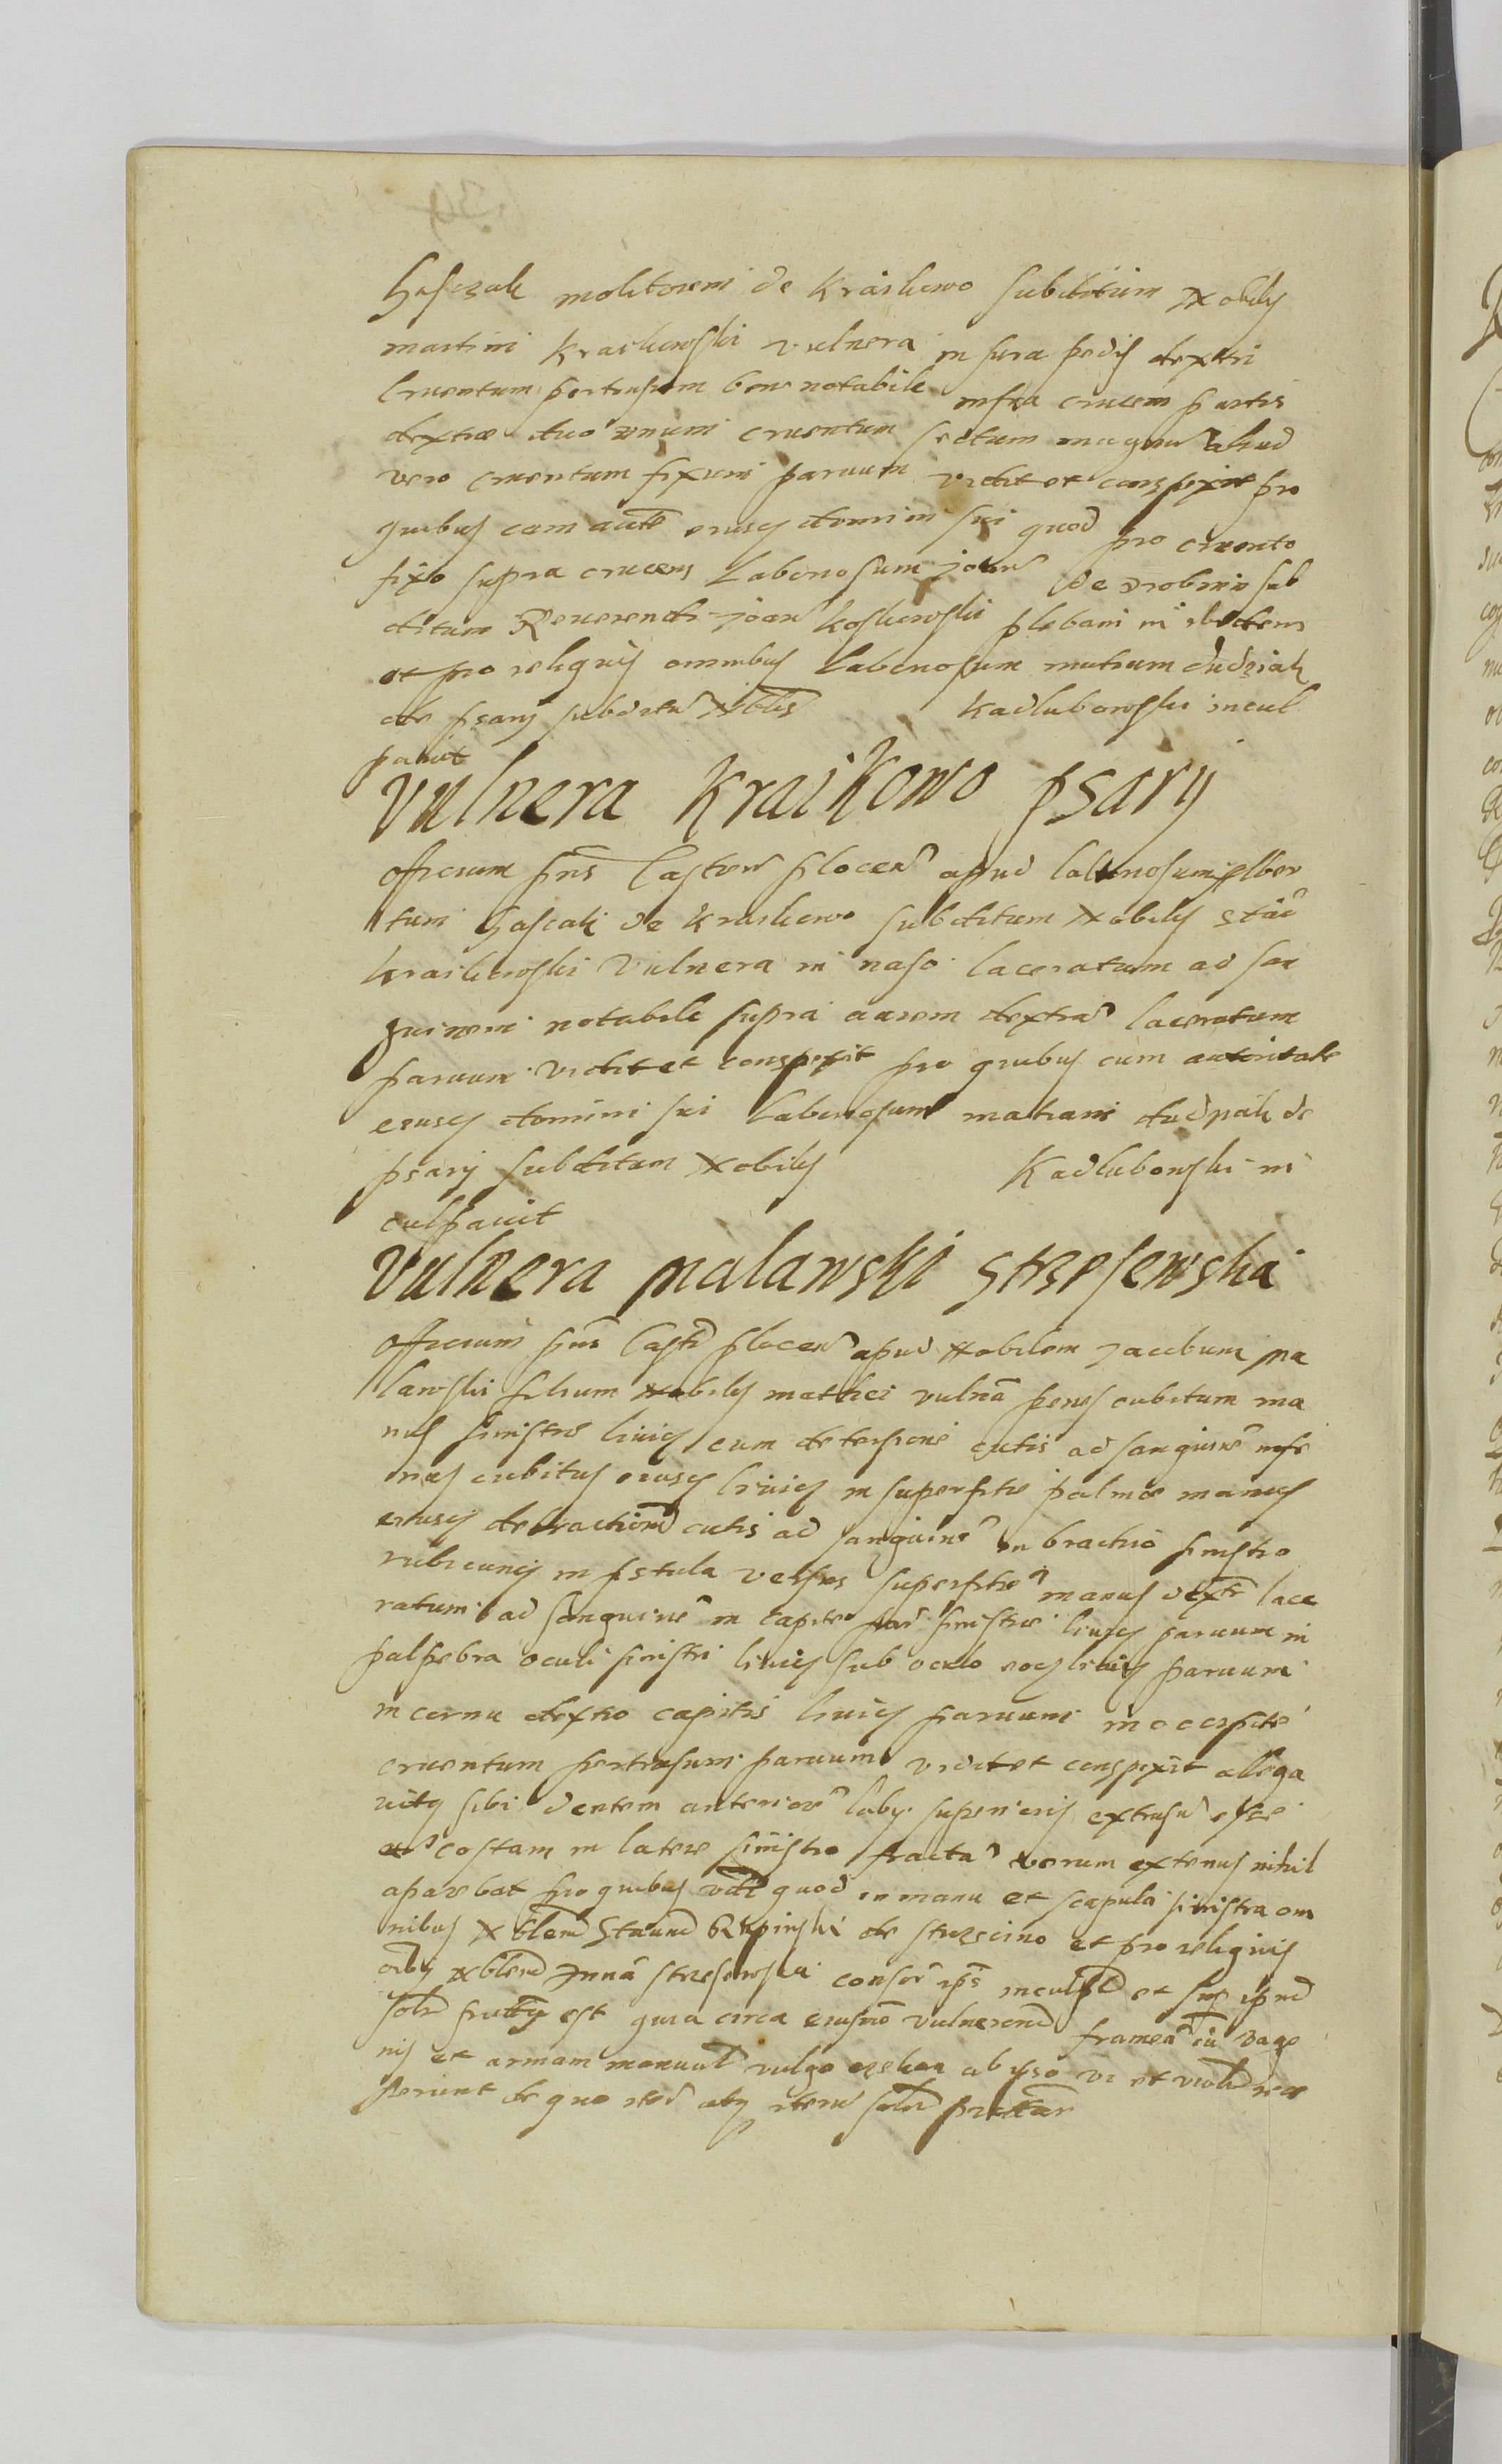 molitorem de Kraikowo subditum Nobilis
martini Kraikowski vulnera in sura pedis dextri
Cruentum pertusum bene notabile infra crucem partis
dextre duo unum cruentum sectum magnu aliud
vero cruentum fixum paruum vidit et conspexit pro
quibus cum aucte eiusq domini sui quod pro cruento
fixo supra crucem Laboriosum Joan de drobnin sub
ditum Reuerendi Joan Koskowski plebani in ibidem
et pro reliquis omnibus Laboriosum mathiam dudziak
de psary subditu Nblis Kadlubowski incul
pauit
Vulnera Kraikowo psary
Officium pns Castren plocen apud laboriosum Alber
tum Gascak de Kraikowo subditum Nobilis Stan
Kraikowski Vulnera in naso laceratum ad san
guinem notabile supra aurem dextra laceratum
paruum vidit et conspexit pro quibus cum autoritate
eiusq domini sui Laboriosum mathiam dudziak de
psary subditum Nobilis Kadlubowski in
culpauit
Vulnera malawski Strzesewska
Officium pns Castr plocen apud Nobilem Jacobum ma
lawski filium Nobilis mathei vulna penes cubitum ma
nus sinistre liuid cum detersione cutis ad sanguine infe
rius cubitus eiusq liuid in superfitie palme manus
eiusq detractione cutis ad sanguine in brachio sinistro
rubicund in fistula versus superfitie manus dextr lace
ratum ad sanguine in capite par sinistre liuid paruum in
palpebra oculi sinistri liuid sub oculo eoq liuid paruum
in cornu dextro capitis liuid paruum in occipite
cruentum pertusum paruum vidit et conspexit allega
uitq sibi dentem anteriore laby superioris extrusu esse
et costam in latere sinistro fracta verum extenus nihil
aparebat pro quibus vdt quod in manu et scapula sinistra om
nibus Nblem Stanis Rempinski de et pro reliquis
oibus Nblem Anna Strzesewska consor ips inculpt et
est quia circa eiusmo vulneratio framea cu vage
nis et armam manual vulgo ab ipso vi et violen rece
perunt de quo ited atq iteru